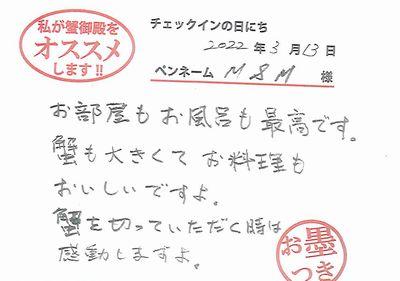 私が蟹御殿を
オススメ
します!!
チェックインの日にち
2022年3月13日
ペンネーム MSM 様
お部屋もお風呂も最高です。
蟹も大きくてお料理も
おいしいですよ。
蟹を切っていただく時は
感動しますよ。
お墨
つき